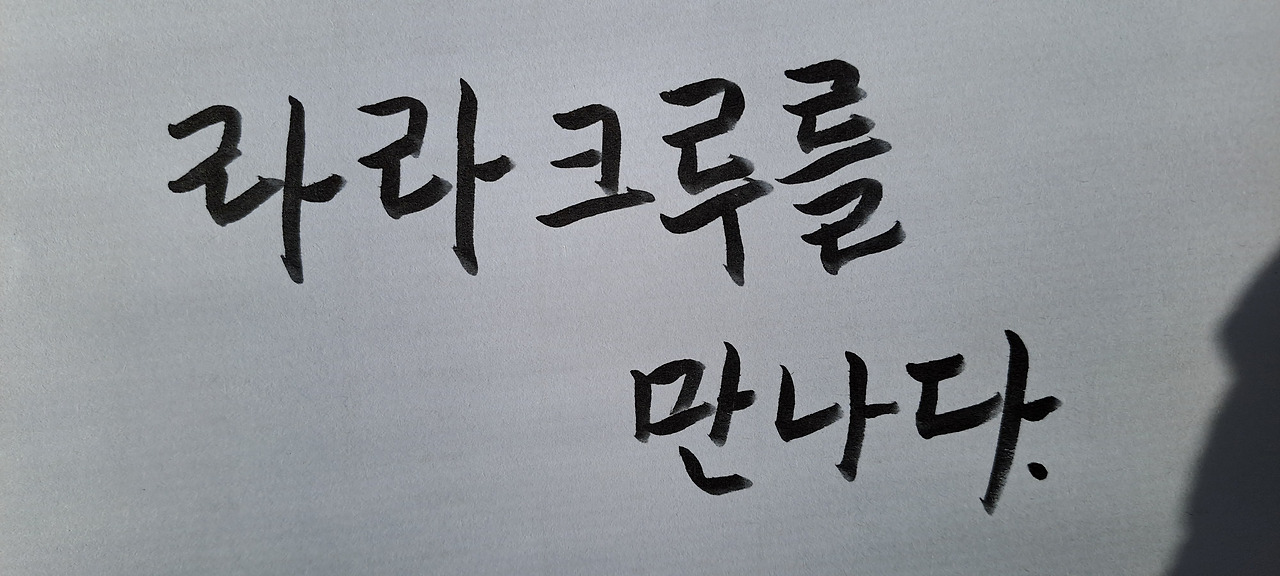 라라크루를
만나다.